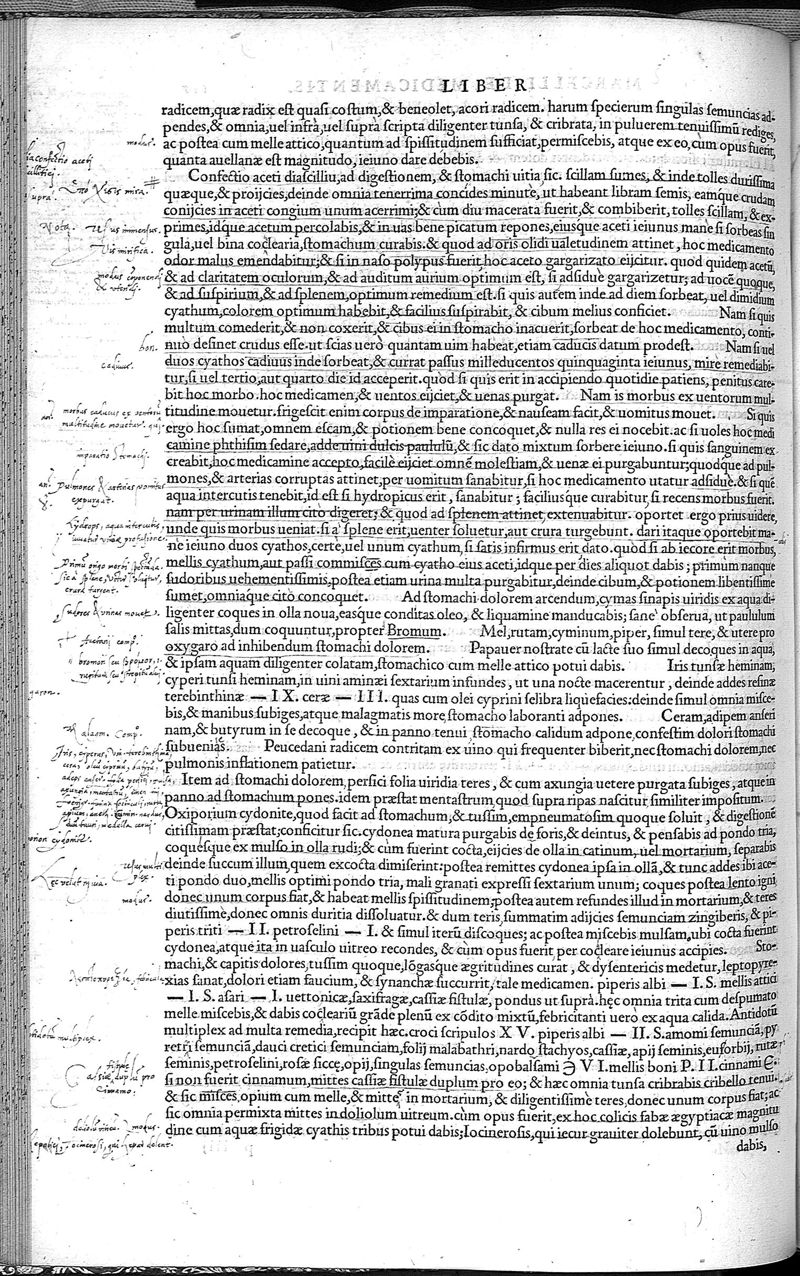 LIBER
radicem, quæ radix est quasi costum, & beneolet, acori radicem. harum specierum singulas semuncias ad-
pendes, & omnia, uel infrà, uel suprà scripta diligenter tunsa, & cribrata, in puluerem tenuissimũ rediges,
ac postea cum melle attico, quantum ad spissitudinem sufficiat, permiscebis, atque ex eo, cum opus fuerit,
quanta auellanæ est magnitudo, ieiuno dare debebis.
Confectio aceti diascilliu, ad digestionem, & stomachi uitia sic. scillam sumes, & inde tolles durissima
quæque, & proijcies, deinde omnia tenerrima concides minutè, ut habeant libram semis, eamq́ue crudam
conijcies in aceti congium unum acerrimi; & cùm diu macerata fuerit, & combiberit, tolles scillam, & ex-
primes, idque acetum percolabis, & in uas bene picatum repones, eiusque aceti ieiunus manè si sorbeas sin
gula, uel bina coclearia, stomachum curabis. & quod ad oris olidi ualetudinem attinet, hoc medicamento
odor malus emendabitur; & si in naso polypus fuerit, hoc aceto gargarizato eijcitur. quod quidem acetũ,
& ad claritatem oculorum, & ad auditum aurium optimum est, si adsiduè gargarizetur; ad uocẽ quoque,
& ad suspirium, & ad splenem, optimum remedium est. si quis autem inde ad diem sorbeat, uel dimidium
cyathum, colorem optimum habebit, & facilius suspirabit, & cibum melius conficiet. Nam si quis
multum comederit, & non coxerit, & cibus ei in stomacho inacuerit, sorbeat de hoc medicamento, conti-
nuo desinet crudus esse. ut scias uerò quantam uim habeat, etiam caducis datum prodest. Nam si uel
duos cyathos cadiuus inde sorbeat, & currat passus milleducentos quinquaginta ieiunus, mirè remediabi-
tur, si uel tertio, aut quarto die id acceperit. quod si quis erit in accipiendo quotidie patiens, penitus care-
bit hoc morbo. hoc medicamen, & uentos eijciet, & uenas purgat. Nam is morbus ex uentorum mul-
titudine mouetur. frigescit enim corpus de imparatione, & nauseam facit, & uomitus mouet. Si quis
ergo hoc sumat, omnem escam, & potionem bene concoquet, & nulla res ei nocebit. ac si uoles hoc medi
camine phthisim sedare, adde uini dulcis paululũ, & sic dato mixtum sorbere ieiuno. si quis sanguinem ex
creabit, hoc medicamine accepto, facilè eijciet omnẽ molestiam, & uenæ ei purgabuntur; quodque ad pul-
mones, & arterias corruptas attinet, per uomitum sanabitur, si hoc medicamento utatur adsiduè. & si quẽ
aqua intercutis tenebit, id est si hydropicus erit, sanabitur; faciliusque curabitur, si recens morbus fuerit.
nam per urinam illum cito digeret; & quod ad splenem attinet, extenuabitur. oportet ergo prius uidere,
unde quis morbus ueniat. si à splene erit, uenter soluetur, aut crura turgebunt. dari itaque oportebit ma-
nè ieiuno duos cyathos, certe, uel unum cyathum, si satis infirmus erit dato. quòd si ab iecore erit morbus,
mellis cyathum, aut passi commisces cum cyatho eius aceti, idque per dies aliquot dabis; primùm nanque
sudoribus uehementissimis, postea etiam urina multa purgabitur, deinde cibum, & potionem libentissime
sumet, omniaque citò concoquet. Ad stomachi dolorem arcendum, cymas sinapis uiridis ex aqua di-
ligenter coques in olla noua, easque conditas oleo, & liquamine manducabis; sanè obserua, ut paululum
salis mittas, dum coquuntur, propter Bromum. Mel, rutam, cyminum, piper, simul tere, & utere pro
oxygaro ad inhibendum stomachi dolorem. Papauer nostrate cũ lacte suo simul decoques in aqua,
& ipsam aquam diligenter colatam, stomachico cum melle attico potui dabis. Iris tunsæ heminam,
cyperi tunsi heminam, in uini aminæi sextarium infundes, ut una nocte macerentur, deinde addes resinæ
terebinthinæ — IX. ceræ — III. quas cum olei cyprini selibra liquefacies: deinde simul omnia misce-
bis, & manibus subiges, atque malagmatis more stomacho laboranti adpones. Ceram, adipem anseri
nam, & butyrum in se decoque, & in panno tenui stomacho calidum adpone, confestim dolori stomachi
subuenies. Peucedani radicem contritam ex uino qui frequenter biberit, nec stomachi dolorem, nec
pulmonis inflationem patietur.
Item ad stomachi dolorem, persici folia uiridia teres, & cum axungia uetere purgata subiges, atque in
panno ad stomachum pones. idem præstat mentastrum, quod supra ripas nascitur, similiter impositum.
Oxiporium cydonite, quod facit ad stomachum, & tussim, empneumatosim quoque soluit, & digestionẽ
citissimam præstat; conficitur sic. cydonea matura purgabis de foris, & deintus, & pensabis ad pondo tria,
coquesq́ue ex mulso in olla rudi; & cùm fuerint cocta, eijcies de olla in catinum, uel mortarium, separabis
deinde succum illum, quem excocta dimiserint: postea remittes cydonea ipsa in ollã, & tunc addes ibi ace-
ti pondo duo, mellis optimi pondo tria, mali granati expressi sextarium unum; coques postea lento igni
donec unum corpus fiat, & habeat mellis spissitudinem; postea autem refundes illud in mortarium, & teres
diutissimè, donec omnis duritia dissoluatur. & dum teris, summatim adijcies semunciam zingiberis, & pi-
peris triti — II. petroselini — I. & simul iterũ discoques; ac postea miscebis mulsam, ubi cocta fuerint
cydonea, atque ita in uasculo uitreo recondes, & cùm opus fuerit, per cocleare ieiunus accipies. Sto-
machi, & capitis dolores, tussim quoque, lõgasque ægritudines curat, & dysentericis medetur, leptopyre-
xias sanat, dolori etiam faucium, & synanchæ succurrit, tale medicamen. piperis albi — I. S. mellis attici
— I. S. asari — I. uettonicæ, saxifragæ, cassiæ fistulæ, pondus ut suprà. hęc omnia trita cum despumato
melle miscebis, & dabis cocleariũ grãde plenũ ex cõdito mixtũ, febricitanti uero ex aqua calida. Antidotũ
multiplex ad multa remedia, recipit hæc. croci scripulos XV. piperis albi — II. S. amomi semunciã, py
retri semunciã, dauci cretici semunciam, folij malabathri, nardo stachyos, cassiæ, apij seminis, euforbij, rutæ
seminis, petroselini, rosæ siccę, opij, singulas semuncias, opobalsami Ə VI. mellis boni P. II. cinnami Є.
si non fuerit cinnamum, mittes cassiæ fistulæ duplum pro eo; & hæc omnia tunsa cribrabis cribello tenui,
& sic misces, opium cum melle, & mittes in mortarium, & diligentissime teres, donec unum corpus fiat; ac
sic omnia permixta mittes in doliolum uitreum. cùm opus fuerit, ex hoc colicis fabæ ægyptiacæ magnitu
dine cum aqua frigidæ cyathis tribus potui dabis; Iocinerosis, qui iecur grauiter dolebunt, cũ uino mulso
dabis,
modus.
Nota. Usus immensus.
Vis mirifica.
cadiuus.
modus.